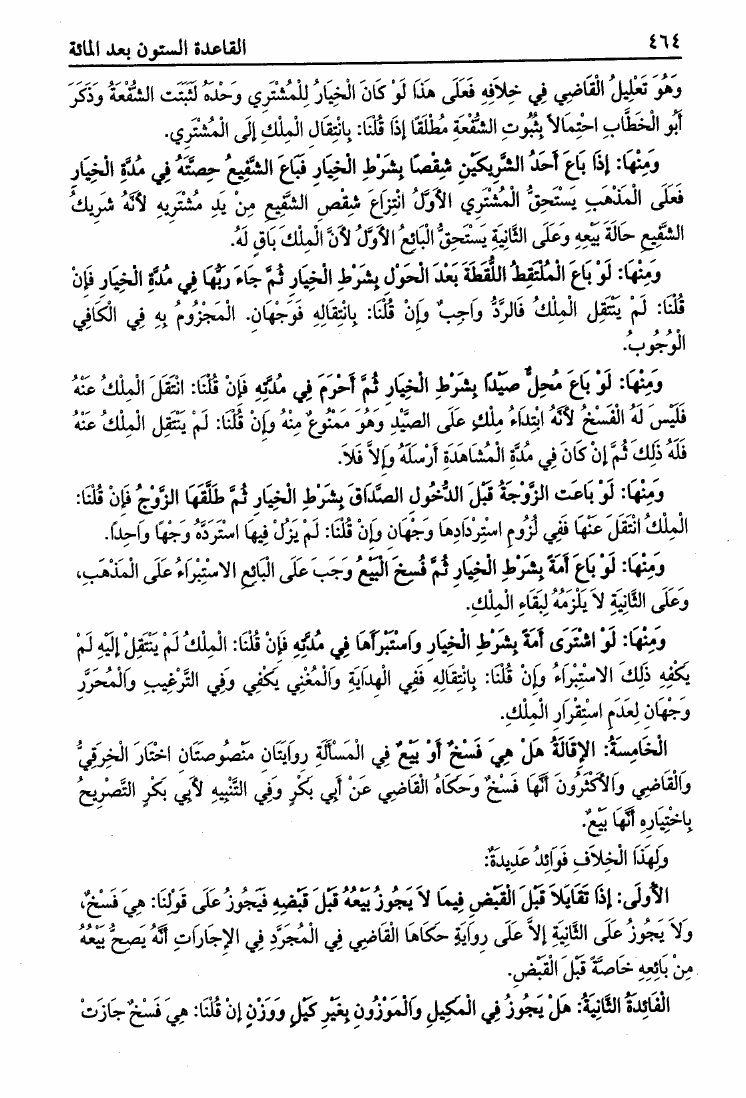 ٤٦٤
القاعدة الستون بعد المائة
وَهُوَ تَعْلِيلُ الْقَاضِي فِي خِلَافِهِ فَعَلَى هَذَا لَوْ كَانَ الْخِيَارُ لِلْمُشْتَرِي وَحْدَهُ لَثَبَتَت الشُّفْعَةُ وَذَكَرَ
أَبُو الْخَطَّابِ احْتِمَالاً بِثُبُوتِ الشُّفْعَةِ مُطْلَقًا إِذَا قُلْنَا: بِانْتِقَالِ الْمِلْكِ إِلَى الْمُشْتَرِي.
وَمِنْهَا: إِذَا بَاعَ أَحَدُ الشَّرِيكَيْنِ شِقْصًا بِشَرْطِ الْخِيَارِ فَبَاعَ الشَّفِيعُ حِصَّتَهُ فِي مُدَّةِ الْخِيَارِ
فَعَلَى الْمَذْهَبِ يَسْتَحِقُّ الْمُشْتَرِي الأَوَّلُ انْتِزَاعَ شِقْصِ الشَّفِيعِ مِنْ يَدِ مُشْتَرِيهِ لأَنَّهُ شَرِيكُ
الشَّفِيعِ حَالَةَ بَيْعِهِ وَعَلَى الثَّانِيَةِ يَسْتَحِقُّ الْبَائِعُ الأَوَّلُ لأَنَّ الْمِلْكَ بَاقٍ لَهُ.
وَمِنْهَا: لَوْ بَاعَ الْمُلْتَقِطُ اللُّقَطَةَ بَعْدَ الْحَوْلِ بِشَرْطِ الْخِيَارِ ثُمَّ جَاءَ رَبُّهَا فِي مُدَّةِ الْخِيَارِ فَإِنْ
قُلْنَا: لَمْ يَنْتَقِل الْمِلْكُ فَالرَّدُّ وَاجِبٌ وَإِنْ قُلْنَا: بِانْتِقَالِهِ فَوَجْهَان. الْمَجْزُومُ بِهِ فِي الْكَافِي
الْوُجُوبُ.
وَمِنْهَا: لَوْ بَاعَ مُحِلٌّ صَيْدًا بِشَرْطِ الْخِيَارِ ثُمَّ أَحْرَمَ فِي مُدَّتِهِ فَإِنْ قُلْنَا: انْتَقَلَ الْمِلْكُ عَنْهُ
فَلَيْسَ لَهُ الْفَسْخُ لأَنَّهُ ابْتِدَاءُ مِلْكٍ عَلَى الصَّيْدِ وَهُوَ مَمْنُوعٌ مِنْهُ وَإِنْ قُلْنَا: لَمْ يَنْتَقِلِ الْمِلْكُ عَنْهُ
فَلَهُ ذَلِكَ ثُمَّ إِنْ كَانَ فِي مُدَّةِ الْمُشَاهَدَةِ أَرْسَلَهُ وَإِلاَّ فَلاَ.
وَمِنْهَا: لَوْ بَاعت الزَّوْجَةُ قَبْلَ الدُّخُولِ الصَّدَاقَ بِشَرْطِ الْخِيَارِ ثُمَّ طَلَّقَهَا الزَّوْجُ فَإِنْ قُلْنَا:
الْمِلْكُ انْتَقَلَ عَنْهَا فَفِي لُزُومِ اسْتِرْدَادِهَا وَجْهَان وَإِنْ قُلْنَا: لَمْ يَزُلْ فِيهَا اسْتَرَدَّهُ وَجْهًا وَاحِدًا.
وَمِنْهَا: لَوْ بَاعَ أَمَةً بِشَرْطِ الْخِيَارِ ثُمَّ فُسِخَ الْبَيْعُ وَجَبَ عَلَى الْبَائِعِ الاسْتِبْرَاءُ عَلَى الْمَذْهَبِ،
وَعَلَى الثَّانِيَةِ لاَ يَلْزَمُهُ لِبَقَاءِ الْمِلْكِ.
وَمِنْهَا: لَوْ اشْتَرَى أَمَةً بِشَرْطِ الْخِيَارِ وَاسْتَبْرَأَهَا فِي مُدَّتِهِ فَإِنْ قُلْنَا: الْمِلْكُ لَمْ يَنْتَقِلْ إِلَيْهِ لَمْ
يَكْفِهِ ذَلِكَ الاسْتِبْرَاءُ وَإِنْ قُلْنَا: بِانْتِقَالِهِ فَفِي الْهِدَايَةِ وَالْمُغْنِي يَكْفِي وَفِي التَّرْغِيبِ وَالْمُحَرَّرِ
وَجْهَانِ لِعَدَمِ اسْتِقْرَارِ الْمِلْكِ.
الْخَامِسَةُ: الإِقَالَةُ هَلْ هِيَ فَسْخٌ أَوْ بَيْعٌ فِي الْمَسْأَلَةِ رِوَايَتَانِ مَنْصُوصَتَانِ اخْتَارَ الْخِرَقِيُّ
وَالْقَاضِي وَالأَكْثَرُونَ أَنَّهَا فَسْخٌ وَحَكَاهُ الْقَاضِي عَنْ أَبِي بَكْرٍ وَفِي التَّنْبِيهِ لأَبِي بَكْرٍ التَّصْرِيحُ
بِاخْتِيَارِهِ أَنَّهَا بَيْعٌ.
وَلِهَذَا الْخِلاَفِ فَوَائِدُ عَدِيدَةٌ:
الأُولَى: إِذَا تَقَايَلاَ قَبْلَ الْقَبْضِ فِيمَا لاَ يَجُوزُ بَيْعُهُ قَبْلَ قَبْضِهِ فَيَجُوزُ عَلَى قَوْلِنَا: هِيَ فَسْخٌ،
وَلاَ يَجُوزُ عَلَى الثَّانِيَةِ إِلاَّ عَلَى رِوَايَةٍ حَكَاهَا الْقَاضِي فِي الْمُجَرَّدِ فِي الإِجَارَاتِ أَنَّهُ يَصِحُّ بَيْعُهُ
مِنْ بَائِعِهِ خَاصَّةً قَبْلَ الْقَبْضِ.
الْفَائِدَةُ الثَّانِيَةُ: هَلْ يَجُوزُ فِي الْمَكِيلِ وَالْمَوْزُونِ بِغَيْرِ كَيْلٍ وَوَزْنٍ إِنْ قُلْنَا: هِيَ فَسْخٌ جَازَتْ